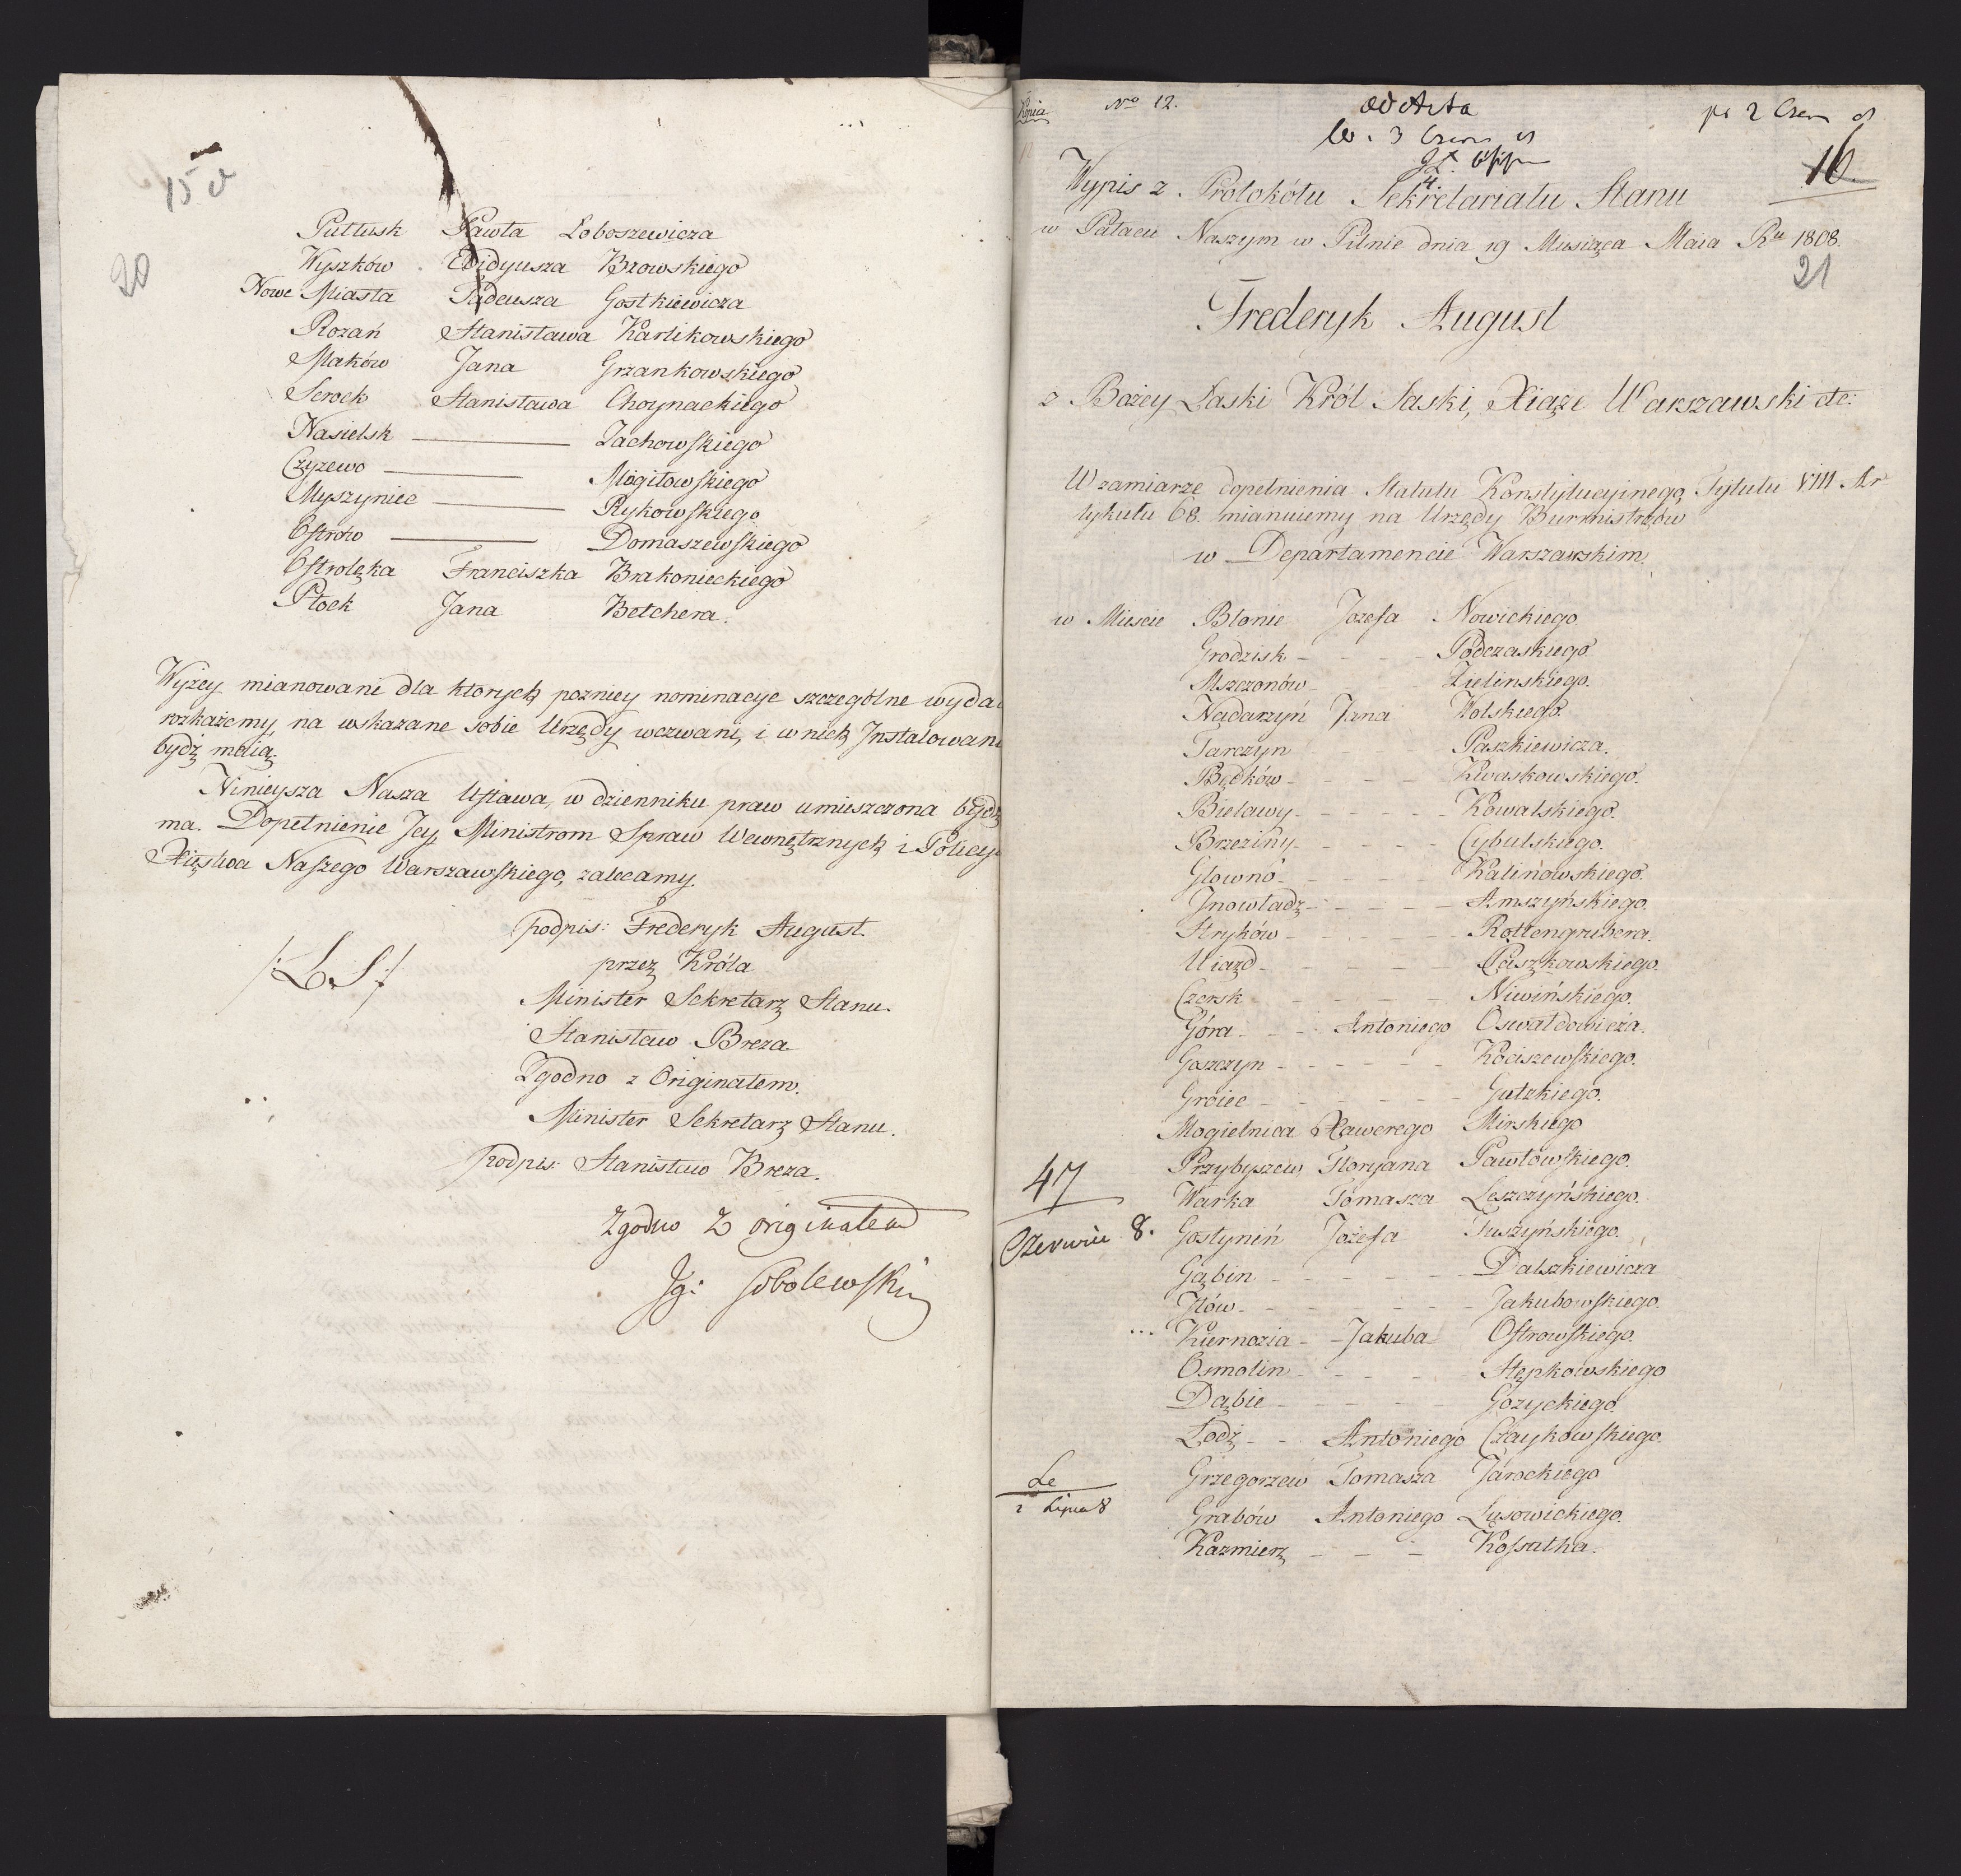 15 v
20
Pułtusk Pawła Łoboszewicza
Wyszków Edidyusza Brzowskiego
Nowe Miasta Tadeusza Gostkiewicza
Rozań Stanisława Karlikowskiego
Maków Jana Grzankowskiego
Serock Stanisława Choynackiego
Nasielsk Zachowskiego
Czyzewo Mogiłowskiego
Myszyniec Rykowskiego
Ostrów Domaszewskiego
Ostrolęka Franciszka Brakonieckiego
Płock Jana Betchera.
Wyżey mianowani dla ktorych pozniey nominacye szczególne wydać
rozkażemy, na wskazane sobie Urzędy wezwani, i w nich Jnstalowani
bydź maią.
Ninieysza Nasza Ustawa, w dzienniku praw umieszczona bydź
ma. Dopełnienie Jey Ministrom Spraw Wewnętrznych i Policyi
Xięstwa Naszego Warszawskiego, zalecamy.
podpis: Frederyk August.
/:L.S:/
przez Króla
Minister Sekretarz Stanu.
Stanisław Breza.
Zgodno z Originałem.
Minister Sekretarz Stanu.
podpis: Stanisław Breza.
Zgodno z originałem
Jg: Sobolewski
Kopia No 12. ad Acta pr 2 Czer
3 Czerw
16
Wypis z Protokółu Sekretariatu Stanu
w Pałacu Naszym w Pilnie dnia 19 Miesiąca Maia Ru 1808.
21
Frederyk August
z Bożey Łaski Król Saski, Xiąże Warszawski etc:
W zamiarze dopełnienia Statutu Konstytucyinego, Tytułu VIII Ar
tykułu 68. mianuiemy na Urzędy Burmistrzów
w Departamencie Warszawskim.
w Mieście Błonie Jozefa Nowickiego
Grodzisk - - - Podczaskiego
Mszczonów Zielinskiego.
Nadarzyń Jana Wolskiego.
Tarczyn - - - Paszkiewicza.
Będków - - - - Kwaskowskiego.
Bielawy - - - - - Kowalskiego.
Brzeziny - - - - Cybulskiego.
Głowno - - - - Kalinowskiego.
Jnowładz - - - - Amszyńskiego.
Stryków - - - - Rottengrubera.
Uiazd - - - - - Paszkowskiego.
Czersk - - - - Niwińskiego.
Góra - - Antoniego Oswałdowicza.
Goszczyn - - - - - Kociszewskiego.
Groiec - - - - - Gutzkiego.
Mogielnica Xawerego Mirskiego
Przybyszew Floryana Pawłowskiego.
47
Warka Tomasza Leszczyńskiego.
Czerwiec 8. Gostyniń Jozefa Tuszyńskiego.
Gąbin - - - - - Dalszkiewicza
Jłów - - - - - Jakubowskiego.
Kiernozia - - Jakuba Ostrowskiego.
Osmolin - - - - Stępkowskiego
Dąbie - - - - Gozyckiego.
Łodź - - Antoniego Czaykowskiego.
Grzegorzew Tomasza Jarockiego
2 Lipca 8
Grabów Antoniego Lusowickiego.
Kazmierz - - - Kossutha.